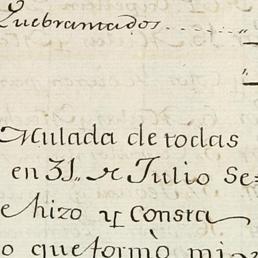 Quebrantados
Mulada de todas
en 31,, de Julio Se=
e hizo y consta
o que formò mi